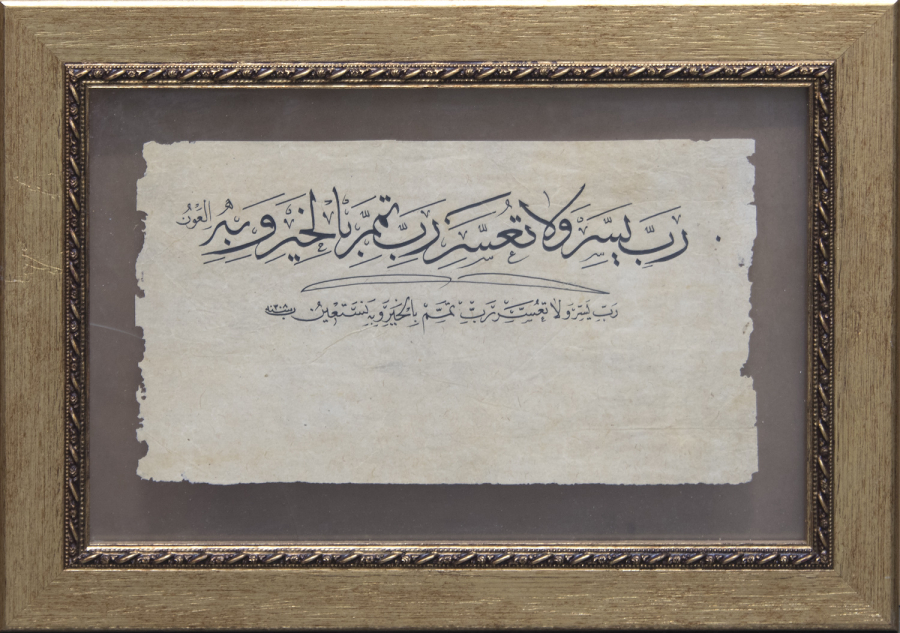 رَبِّ يَسِّرْ وَلَا تُعَسِّرْ رَبِّ تَمِّمْ بِالْخَيْرِ وَبِهِ الْعَوْنُ
رَبِّ يَسِّرْ وَلَا تُعَسِّرْ رَبِّ تَمِّمْ بِالْخَيْرِ وَبِهِ نَسْتَعِينُ